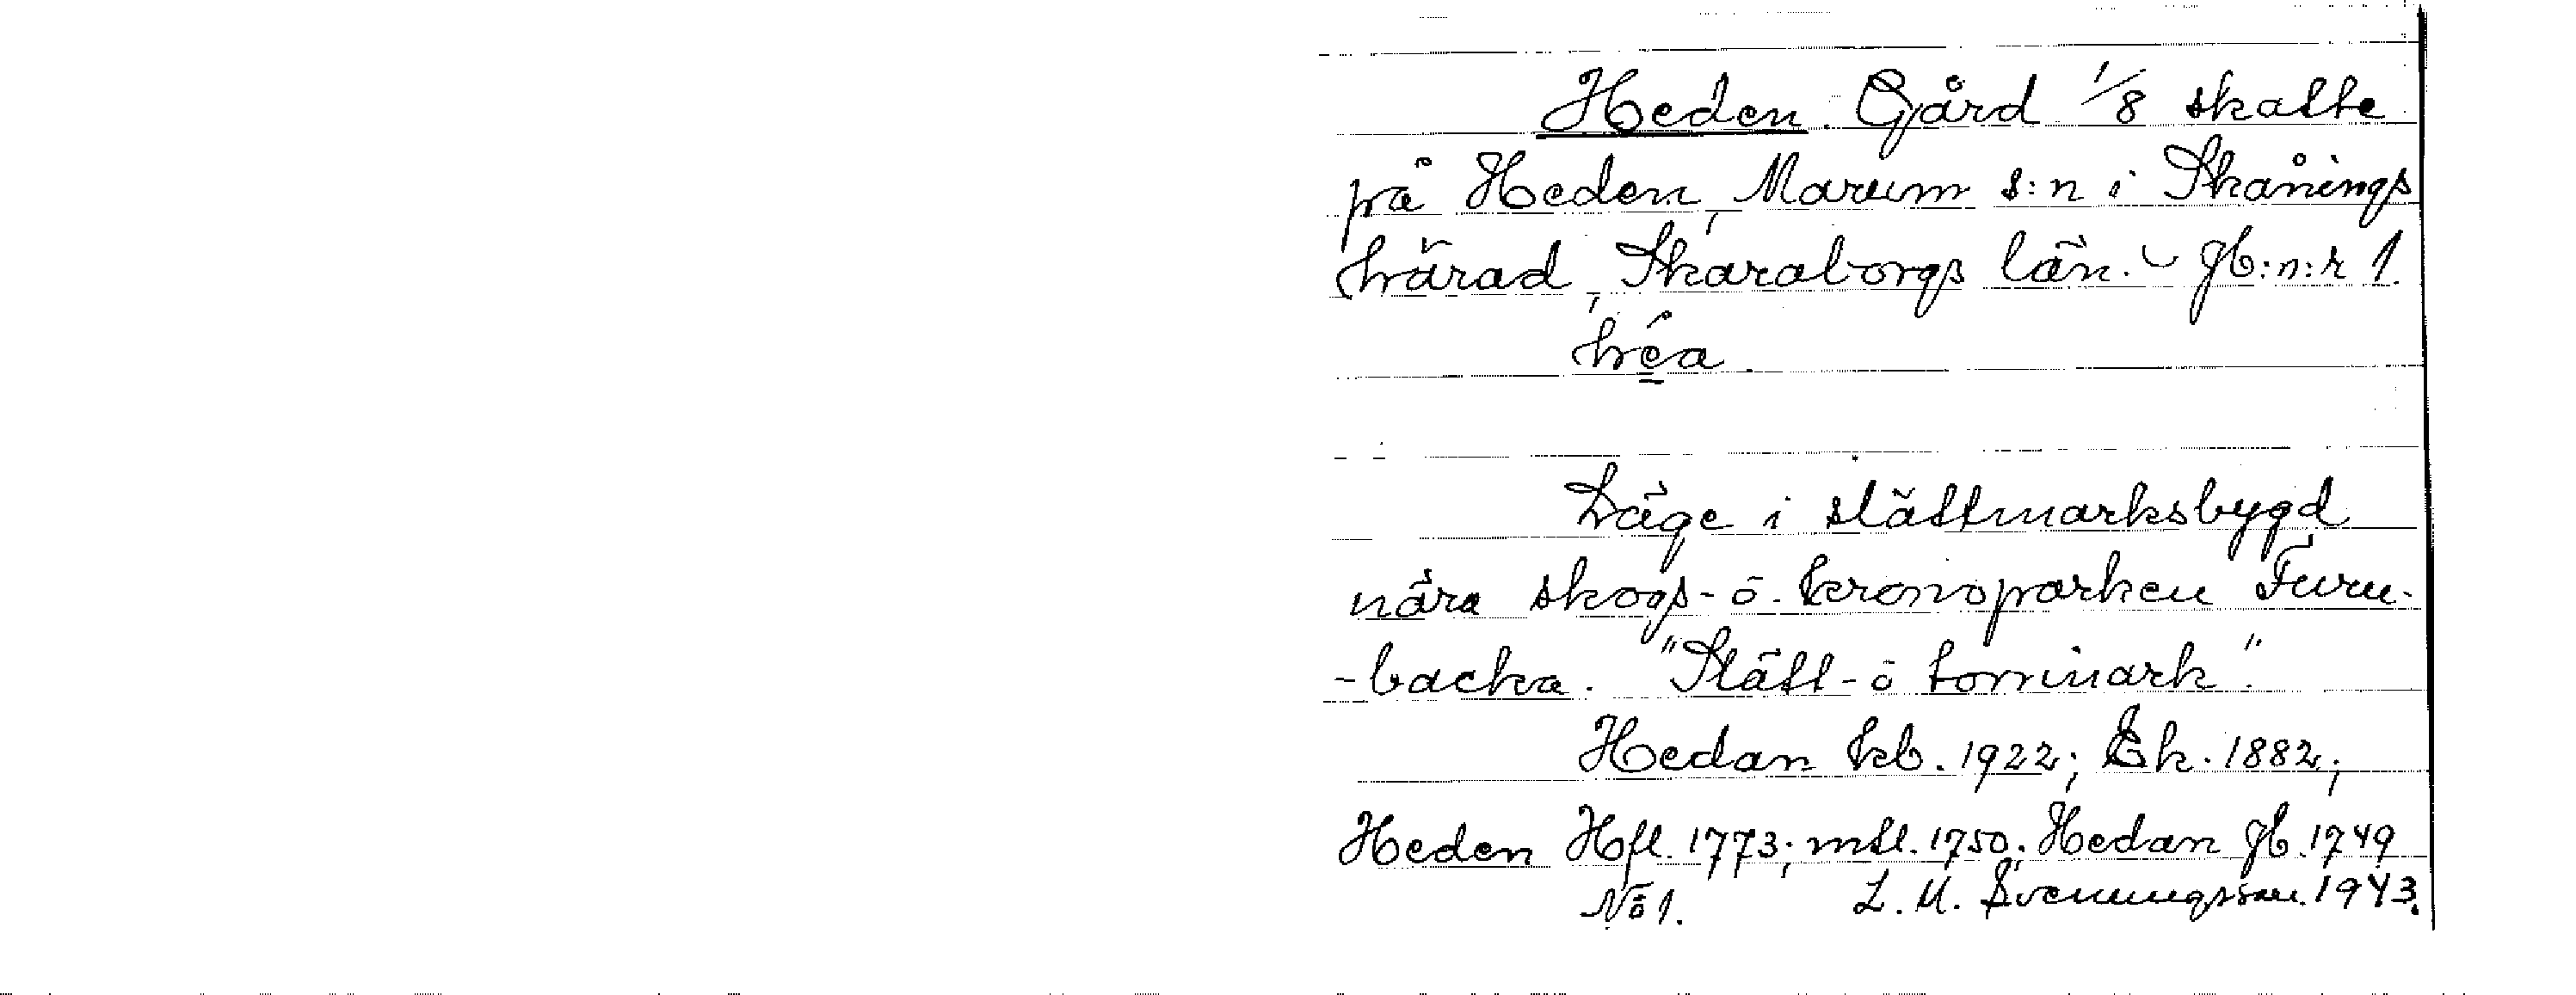 Heden. Gård 1/8 skatte
på Heden, Marum s:n i Skånings
härad, Skaraborgs län. - Jb:n:r 1.
héa.
Läge i slättmarksbygd
nära skogs- ö. kronoparken Furu-
-backa. "Slätt- ö torrmark".
Hedan kb. 1922; Ek. 1882;
Heden Hfl. 1773; mtl. 1750; Hedan Jb. 1749
No 1. L. M. Svenungsson. 1943.